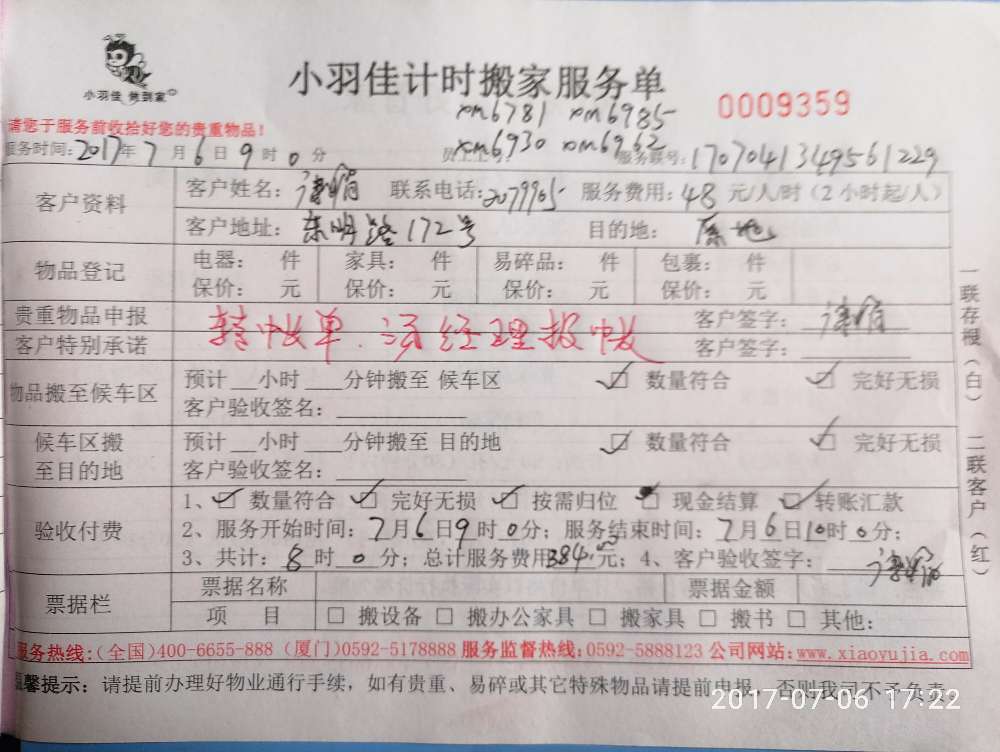 小羽佳 做到家
小羽佳计时搬家服务单
0009359
请您于服务前收拾好您的贵重物品！
xm6781 xm6985
xm6930 xm6962
服务时间：2017年7月6日9时0分 员工工号： 服务联号：1707041349561229
客户资料
客户姓名： 联系电话：2079965 服务费用：48元/人/时（2小时起/人）
客户地址：东明路172号 目的地：原地
物品登记
电器： 件 家具： 件 易碎品： 件 包裹： 件
保价： 元 保价： 元 保价： 元 保价： 元
贵重物品申报 客户签字：
转帐单.汤经理报帐
客户特别承诺 客户签字：
物品搬至候车区
预计__小时___分钟搬至 候车区 ☑ 数量符合 ☑ 完好无损
客户验收签名：
候车区搬
至目的地
预计__小时___分钟搬至 目的地 ☑ 数量符合 ☑ 完好无损
客户验收签名：
验收付费
1、☑ 数量符合 ☑ 完好无损 ☑ 按需归位 现金结算 ☑ 转账汇款
2、服务开始时间：7月6日9时0分；服务结束时间：7月6日10时0分；
3、共计：8时0分；总计服务费用384元；4、客户验收签字：
票据栏
票据名称 票据金额
项 目 □ 搬设备 □ 搬办公家具 □ 搬家具 □ 搬书 □ 其他：
服务热线:(全国)400-6655-888 (厦门)0592-5178888 服务监督热线:0592-5888123 公司网站:www.xiaoyujia.com
温馨提示：请提前办理好物业通行手续，如有贵重、易碎或其它特殊物品请提前申报，否则我司不予负责。
一联存根（白） 二联客户（红）
2017-07-06 17:22